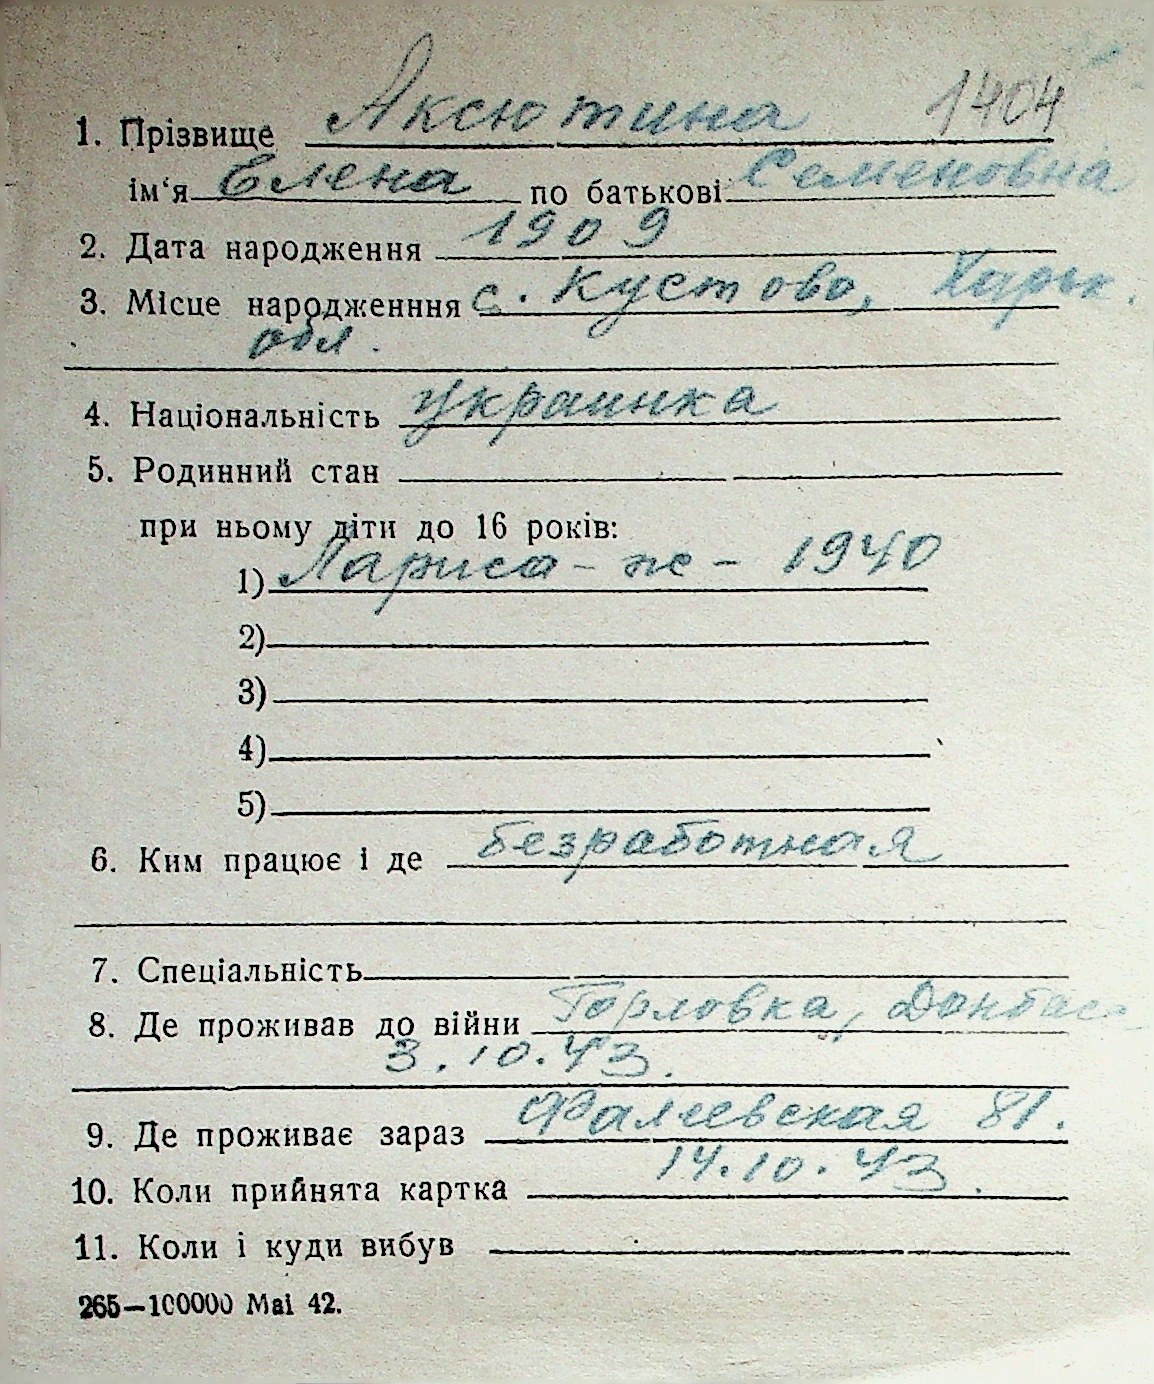 1. Прізвище Аксютина 1404
ім‘я Елена по батькові Семеновна
2. Дата народження 1909
3. Місце народженння с. Кустово, Харьк.
обл.
4. Національність украинка
5. Родинний стан
при ньому діти до 16 років:
1) Лариса - ж - 1940
2)
3)
4)
5)
6. Ким працює і де безработная
7. Спеціальність
8. Де проживав до війни Горловка, Донбасс
3.10.43.
9. Де проживає зараз Фалеевская 81.
10. Коли прийнята картка 14.10.43.
11. Коли і куди вибув
265—100000 Mai 42.